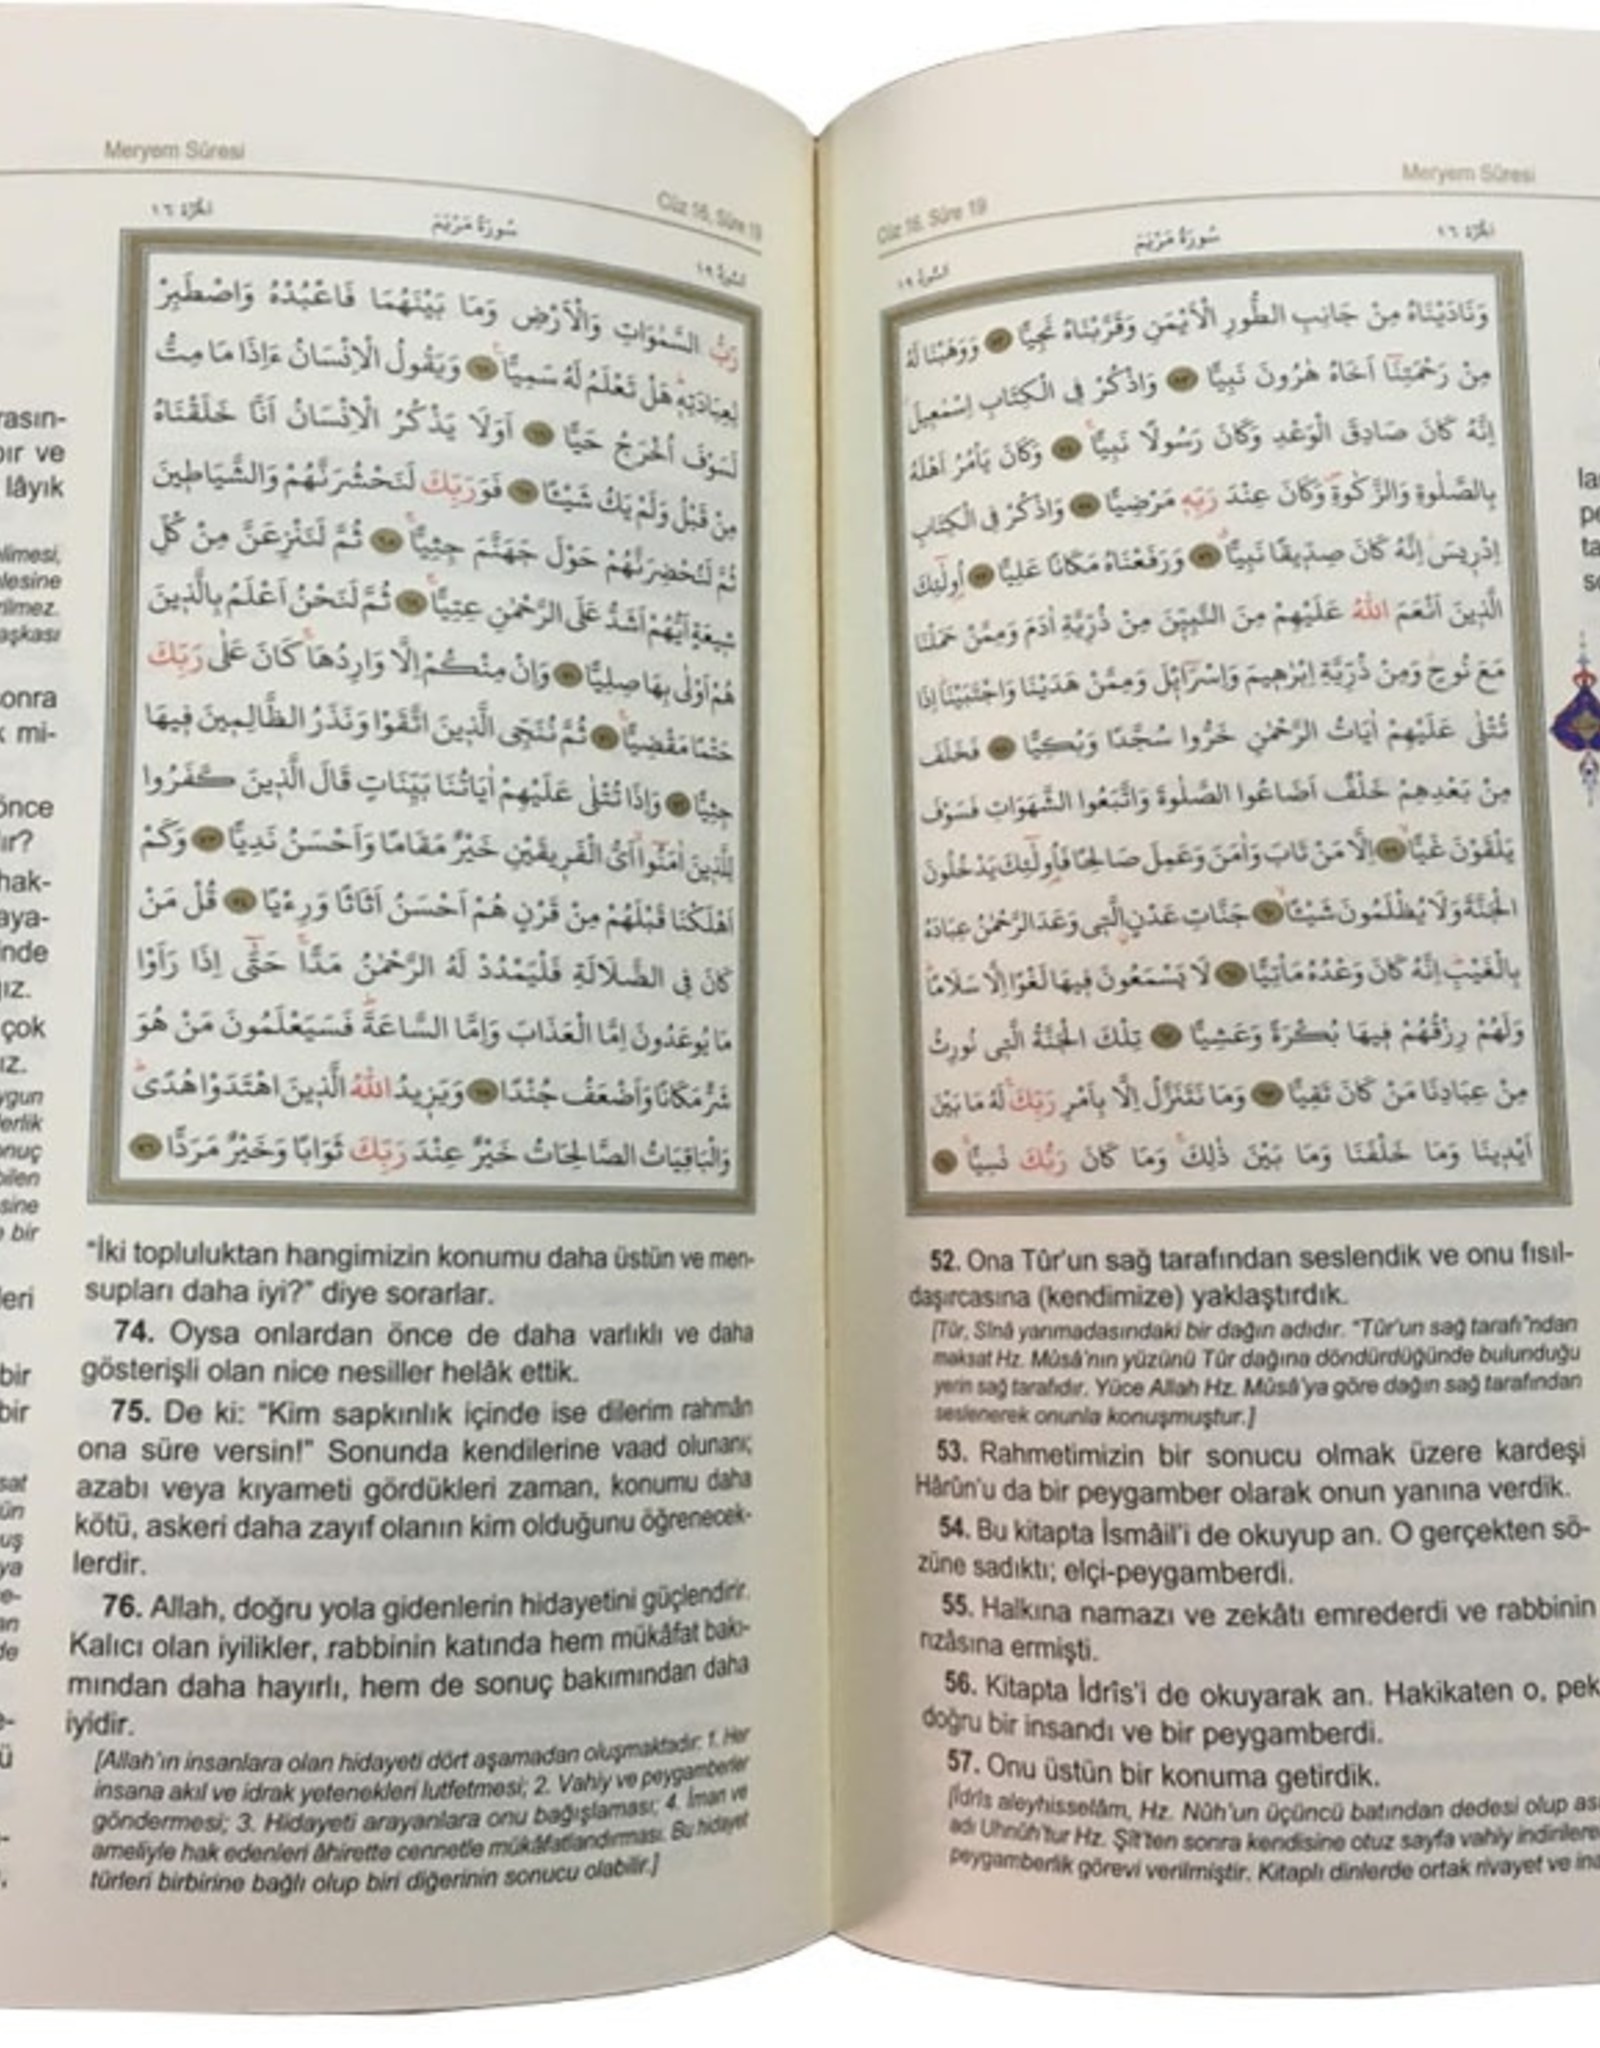 Meryem Sûresi
Cüz 16, Sûre 19
الجزء ١٦
سُورَةُ مَرْيَمَ
السورة ١٩
رَبُّ السَّمٰوَاتِ وَالْاَرْضِ وَمَا بَيْنَهُمَا فَاعْبُدْهُ وَاصْطَبِرْ
لِعِبَادَتِه۪ۜ هَلْ تَعْلَمُ لَهُ سَمِيًّا۟ ﴿٦٥﴾ وَيَقُولُ الْاِنْسَانُ ءَاِذَا مَا مِتُّ
لَسَوْفَ اُخْرَجُ حَيًّا ﴿٦٦﴾ اَوَلَا يَذْكُرُ الْاِنْسَانُ اَنَّا خَلَقْنَاهُ
مِنْ قَبْلُ وَلَمْ يَكُ شَيْـًٔا ﴿٦٧﴾ فَوَرَبِّكَ لَنَحْشُرَنَّهُمْ وَالشَّيَاط۪ينَ
ثُمَّ لَنُحْضِرَنَّهُمْ حَوْلَ جَهَنَّمَ جِثِيًّاۚ ﴿٦٨﴾ ثُمَّ لَنَنْزِعَنَّ مِنْ كُلِّ
ش۪يعَةٍ اَيُّهُمْ اَشَدُّ عَلَى الرَّحْمٰنِ عِتِيًّاۚ ﴿٦٩﴾ ثُمَّ لَنَحْنُ اَعْلَمُ بِالَّذ۪ينَ
هُمْ اَوْلٰى بِهَا صِلِيًّا ﴿٧٠﴾ وَاِنْ مِنْكُمْ اِلَّا وَارِدُهَاۚ كَانَ عَلٰى رَبِّكَ
حَتْمًا مَقْضِيًّاۚ ﴿٧١﴾ ثُمَّ نُنَجِّي الَّذ۪ينَ اتَّقَوْا وَنَذَرُ الظَّالِم۪ينَ ف۪يهَا
جِثِيًّا ﴿٧٢﴾ وَاِذَا تُتْلٰى عَلَيْهِمْ اٰيَاتُنَا بَيِّنَاتٍ قَالَ الَّذ۪ينَ كَفَرُوا
لِلَّذ۪ينَ اٰمَنُٓواۙ اَيُّ الْفَر۪يقَيْنِ خَيْرٌ مَقَامًا وَاَحْسَنُ نَدِيًّا ﴿٧٣﴾ وَكَمْ
اَهْلَكْنَا قَبْلَهُمْ مِنْ قَرْنٍ هُمْ اَحْسَنُ اَثَاثًا وَرِءْيًا ﴿٧٤﴾ قُلْ مَنْ
كَانَ فِي الضَّلَالَةِ فَلْيَمْدُدْ لَهُ الرَّحْمٰنُ مَدًّاۚ حَتّٰٓى اِذَا رَاَوْا
مَا يُوعَدُونَ اِمَّا الْعَذَابَ وَاِمَّا السَّاعَةَۜ فَسَيَعْلَمُونَ مَنْ هُوَ
شَرٌّ مَكَانًا وَاَضْعَفُ جُنْدًا ﴿٧٥﴾ وَيَز۪يدُ اللّٰهُ الَّذ۪ينَ اهْتَدَوْا هُدًىۜ
وَالْبَاقِيَاتُ الصَّالِحَاتُ خَيْرٌ عِنْدَ رَبِّكَ ثَوَابًا وَخَيْرٌ مَرَدًّا ﴿٧٦﴾
“İki topluluktan hangimizin konumu daha üstün ve men-
supları daha iyi?” diye sorarlar.
74. Oysa onlardan önce de daha varlıklı ve daha
gösterişli olan nice nesiller helâk ettik.
75. De ki: “Kim sapkınlık içinde ise dilerim rahmân
ona süre versin!” Sonunda kendilerine vaad olunanı;
azabı veya kıyameti gördükleri zaman, konumu daha
kötü, askeri daha zayıf olanın kim olduğunu öğrenecek-
lerdir.
76. Allah, doğru yola gidenlerin hidayetini güçlendirir.
Kalıcı olan iyilikler, rabbinin katında hem mükâfat bakı-
mından daha hayırlı, hem de sonuç bakımından daha
iyidir.
[Allah’ın insanlara olan hidayeti dört aşamadan oluşmaktadır: 1. Her
insana akıl ve idrak yetenekleri lutfetmesi; 2. Vahiy ve peygamberler
göndermesi; 3. Hidayeti arayanlara onu bağışlaması; 4. İman ve
ameliyle hak edenleri âhirette cennetle mükâfatlandırması. Bu hidayet
türleri birbirine bağlı olup biri diğerinin sonucu olabilir.]
Meryem Sûresi
Cüz 16, Sûre 19
الجزء ١٦
سُورَةُ مَرْيَمَ
السورة ١٩
وَنَادَيْنَاهُ مِنْ جَانِبِ الطُّورِ الْاَيْمَنِ وَقَرَّبْنَاهُ نَجِيًّا ﴿٥٢﴾ وَوَهَبْنَا لَهُ
مِنْ رَحْمَتِنَٓا اَخَاهُ هٰرُونَ نَبِيًّا ﴿٥٣﴾ وَاذْكُرْ فِي الْكِتَابِ اِسْمٰع۪يلَۘ
اِنَّهُ كَانَ صَادِقَ الْوَعْدِ وَكَانَ رَسُولًا نَبِيًّاۚ ﴿٥٤﴾ وَكَانَ يَأْمُرُ اَهْلَهُ
بِالصَّلٰوةِ وَالزَّكٰوةِۖ وَكَانَ عِنْدَ رَبِّه۪ مَرْضِيًّا ﴿٥٥﴾ وَاذْكُرْ فِي الْكِتَابِ
اِدْر۪يسَۘ اِنَّهُ كَانَ صِدّ۪يقًا نَبِيًّاۗ ﴿٥٦﴾ وَرَفَعْنَاهُ مَكَانًا عَلِيًّا ﴿٥٧﴾ اُو۬لٰٓئِكَ
الَّذ۪ينَ اَنْعَمَ اللّٰهُ عَلَيْهِمْ مِنَ النَّبِيّ۪نَ مِنْ ذُرِّيَّةِ اٰدَمَ وَمِمَّنْ حَمَلْنَا
مَعَ نُوحٍۘ وَمِنْ ذُرِّيَّةِ اِبْرٰه۪يمَ وَاِسْرَٓاء۪يلَ وَمِمَّنْ هَدَيْنَا وَاجْتَبَيْنَاۜ اِذَا
تُتْلٰى عَلَيْهِمْ اٰيَاتُ الرَّحْمٰنِ خَرُّوا سُجَّدًا وَبُكِيًّا ﴿٥٨﴾ فَخَلَفَ
مِنْ بَعْدِهِمْ خَلْفٌ اَضَاعُوا الصَّلٰوةَ وَاتَّبَعُوا الشَّهَوَاتِ فَسَوْفَ
يَلْقَوْنَ غَيًّاۙ ﴿٥٩﴾ اِلَّا مَنْ تَابَ وَاٰمَنَ وَعَمِلَ صَالِحًا فَاُو۬لٰٓئِكَ يَدْخُلُونَ
الْجَنَّةَ وَلَا يُظْلَمُونَ شَيْـًٔاۙ ﴿٦٠﴾ جَنَّاتِ عَدْنٍۨ الَّت۪ي وَعَدَ الرَّحْمٰنُ عِبَادَهُ
بِالْغَيْبِۜ اِنَّهُ كَانَ وَعْدُهُ مَأْتِيًّا ﴿٦١﴾ لَا يَسْمَعُونَ ف۪يهَا لَغْوًا اِلَّا سَلَامًاۜ
وَلَهُمْ رِزْقُهُمْ ف۪يهَا بُكْرَةً وَعَشِيًّا ﴿٦٢﴾ تِلْكَ الْجَنَّةُ الَّت۪ي نُورِثُ
مِنْ عِبَادِنَا مَنْ كَانَ تَقِيًّا ﴿٦٣﴾ وَمَا نَتَنَزَّلُ اِلَّا بِاَمْرِ رَبِّكَۚ لَهُ مَا بَيْنَ
اَيْد۪ينَا وَمَا خَلْفَنَا وَمَا بَيْنَ ذٰلِكَۚ وَمَا كَانَ رَبُّكَ نَسِيًّاۚ ﴿٦٤﴾
52. Ona Tûr’un sağ tarafından seslendik ve onu fısıl-
daşırcasına (kendimize) yaklaştırdık.
[Tûr, Sînâ yarımadasındaki bir dağın adıdır. “Tûr’un sağ tarafı”ndan
maksat Hz. Mûsâ’nın yüzünü Tûr dağına döndürdüğünde bulunduğu
yerin sağ tarafıdır. Yüce Allah Hz. Mûsâ’ya göre dağın sağ tarafından
seslenerek onunla konuşmuştur.]
53. Rahmetimizin bir sonucu olmak üzere kardeşi
Hârûn’u da bir peygamber olarak onun yanına verdik.
54. Bu kitapta İsmâil’i de okuyup an. O gerçekten sö-
züne sadıktı; elçi-peygamberdi.
55. Halkına namazı ve zekâtı emrederdi ve rabbinin
rızâsına ermişti.
56. Kitapta İdrîs’i de okuyarak an. Hakikaten o, pek
doğru bir insandı ve bir peygamberdi.
57. Onu üstün bir konuma getirdik.
[İdrîs aleyhisselâm, Hz. Nûh’un üçüncü batından dedesi olup as
adı Uhnûh’tur Hz. Şît’ten sonra kendisine otuz sayfa vahiy indirilere
peygamberlik görevi verilmiştir. Kitaplı dinlerde ortak rivayet ve ina